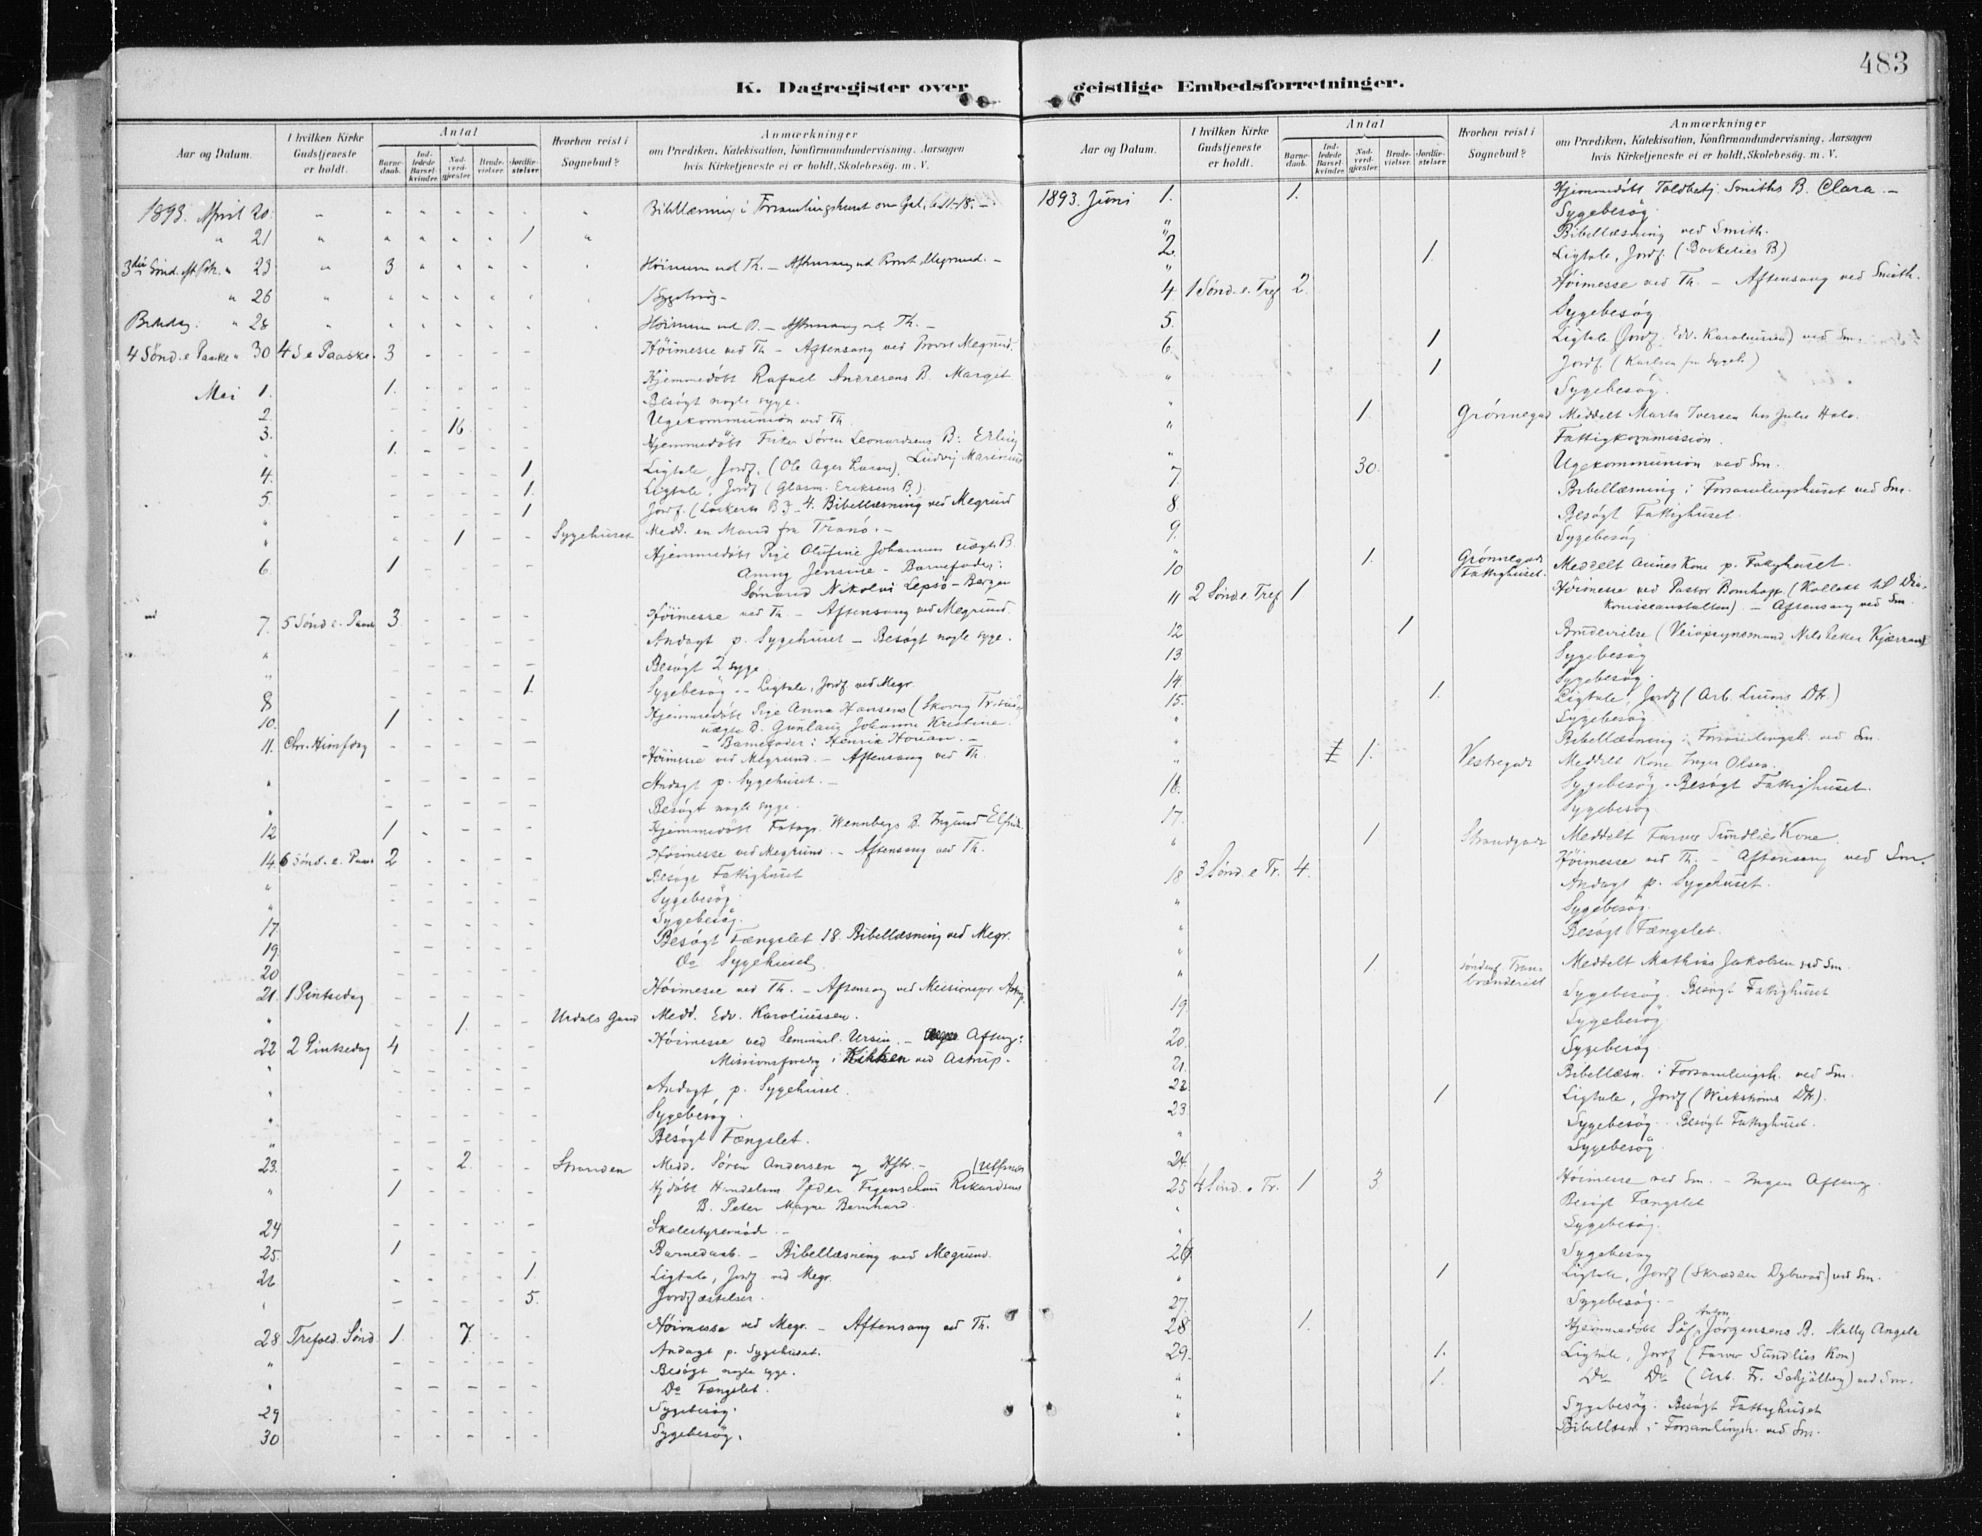 483
K. Dagregister over
Aar og Datum.
I hvilken Kirke Gudstjeneste er holdt.
Antal
Barnedaab.
Indledede Barselkvinder.
Nadverdgjester.
Brudevielser.
Jordfæstelser.
Hvorhen reist i Sognebud?
Anmærkninger
om Prædiken, Katekisation, Konfirmandundervisning, Aarsagen
hvis Kirketjeneste ei er holdt, Skolebesøg. m. V.
1893. April 20 Bibellæsning i Forsamlingshuset
" 21 1
" 23 3 Høimesse ved Th. – Aftensang ved Provst Megrund. –
" 26 Sygebesøg –
Bededag " 28 Høimesse – Aftensang ved Th. –
4 Sønd. e Paaske " 30 4 S e Paaske 3 Høimesse ved Th – Aftensang ved Provst Megrund.
Mai 1. 1. Hjemmedøbt Rafael Andresens B. Margit
Besøgt nogle syge.
2. 16 Ugekommunion ved Th.
3. 1. Hjemmedøbt Fisker Søren Leonardsens B: Erling
Ludvig Marinius
4. 1 Ligtale, Jordf. (Ole Ager Larsen)
5. 1. Ligtale, Jordf (Glasm. Eriksens B)
" 1 Jordf. – 4. Bibellæsning ved Megrund
" 1 Sygehuset Medd. en Mand fra Tranø. –
6. 1 Hjemmedøbt Pige Olufine Johannes uægte B.
Jensine – Barnefader:
Sømand Nikolai Lepsø – Bergen
7. 5 Sønd e. Paaske 3 Høimesse ved Th – Aftensang ved Megrund.
" Andagt p. Sygehuset – Besøgt nogle syge.
" Besøgt 2 syge
8 1 Sygebesøg. – Ligtale, Jordf ved Megr.
10. 1 Hjemmedøbt Pige Anna Hansens
uægte B. Gunlaug Johanne Kristine
– Barnefader: Henrik –
11. Chr. Himlfdag Høimesse ved Megrund – Aftensang ved Th.
" Andagt p. Sygehuset. –
" Besøgt nogle syge.
12 1 Hjemmedøbt Fotogr. Wennbergs B. Ingrid
14. 6 Sønd. e. Paask 2 Høimesse ved Megrund – Aftensang ved Th.
" Besøgt Fattighuset
" Sygebesøg.
17 Sygebesøg.
19. Besøgt Fængslet 18. Bibellæsning ved Megr.
20 Do Sygehuset.
21. 1 Pintsedag Høimesse ved Th. – Aftensang ved Missionspr. Astrup
" 1. Urdals Gaard Medd. Edv. Karoliussen.
22 2 Pintsedag 4 Høimesse ved Seminarl. Ursin. – Aftensg:
" Missionsforedrag i Kirken ved Astrup –
" Andagt p. Sygehuset.
" Sygebesøg.
" Besøgt Fængslet.
23. 2. Stranden Medd. Søren Andersen og Hstr. –
" 1 Hjdøbt Handelsm Peder Figenschau Rikardsens
B. Peter Magne Bernhard.
24 Skolestyremøde –
25. 1 Barnedaab. – Bibellæsning ved Megrund.
26 1. Ligtale, Jordf ved Megr.
" 5. Jordfæstelser.
28 Trefold. Sønd. 1. 7. Høimesse ved Megr. – Aftensang ved Th.
" Andagt p. Sygehuset.
" Besøgt nogle syge.
" Do Fængslet.
29 Sygebesøg.
30 Sygebesøg.
geistlige Embedsforretninger.
Aar og Datum.
I hvilken Kirke Gudstjeneste er holdt.
Antal
Barnedaab.
Indledede Barselkvinder.
Nadverdgjester.
Brudevielser.
Jordfæstelser.
Hvorhen reist i Sognebud?
Anmærkninger
om Prædiken, Katekisation, Konfirmandundervisning, Aarsagen
hvis Kirketjeneste ei er holdt, Skolebesøg. m. V.
1893. Juni 1. 1. Hjemmedøbt Toldbetj. Smiths B. Clara. –
Sygebesøg.
" Bibellæsning ved Smith.
2. 1. Ligtale, Jordf.
4 1 Sønd. e. Tref 2. Høimesse ved Th. – Aftensang ved Smith.
5. Sygebesøg
6. 1 Ligtale (Jordf. Edv. Karoliussen) ved Sm.
" 1 Jordf. (Karlsen fra Sygeh.)
" Sygebesøg.
" 1. Grønnegad Meddelt Marta Iversen hos Julie Holo.
" Fattigkommission.
7. 30. Ugekommunion ved Sm.
8. Bibellæsning i Forsamlingshuset ved Sm.
9. Besøgt Fattighuset.
" Sygebesøg
10 1. Grønnegade Fattighuset. Meddelt Kone p. Fattighuset.
11 2 Sønd e. Tref 1 Høimesse ved Pastor Bomhoff (Kollekt til Dia-
konisseanstalten). – Aftensang ved Sm.
12 1 Brudevielse (Veiopsynsmand Nils Kjærran)
13 Sygebesøg
14 Sygebesøg.
15. 1. Ligtale, Jordf (Arb. Dtr.)
" Sygebesøg.
" Bibellæsning i Forsamlingsh. ved Sm.
" 1. Vestregade Meddelt Kone Inger Olsen.
16. Sygebesøg – Besøgt Fattighuset.
17. Sygebesøg
" 1 Strandgade Meddelt Farver Sundlies Kone.
18 3 Sønd. e Tr. 4. Høimesse ved Th. – Aftensang ved Sm.
" Andagt p. Sygehuset.
" Sygebesøg.
" Besøgt Fængslet.
" 1 søndenf Tranbrænderiet Meddelt Mathias Jakobsen ved Sm.
19. Sygebesøg. Besøgt Fattighuset
" Sygebesøg.
20. Sygebesøg
21. Bibellæsn. i Forsamlingsh. ved Sm.
22 1 Ligtale, Jordf (Wickstrøms Dtr.).
23. Sygebesøg. Besøgt Fattighuset.
" Sygebesøg.
24.
25 4 Sønd. e Tr. 1 3. Høimesse ved Sm. – Ingen Aftensg.
" Besøgt Fængslet
" Sygebesøg.
26 Sygebesøg
" 1 Ligtale, Jordf (Skrædder Dybwad) ved Sm.
27. Sygebesøg. –
28 1. Hjemmedøbt Søf. Anton Jørgensens B. Nelly Angela
29. 1. Ligtale, Jordf (Farver Sundlies Kone)
" 1. Do Do (Arb. Fr. Schjølberg) ved Sm.
" Sygebesøg. Besøgt Fattighuset
" Bibellæsn. i Forsamlingsh. ved Sm.